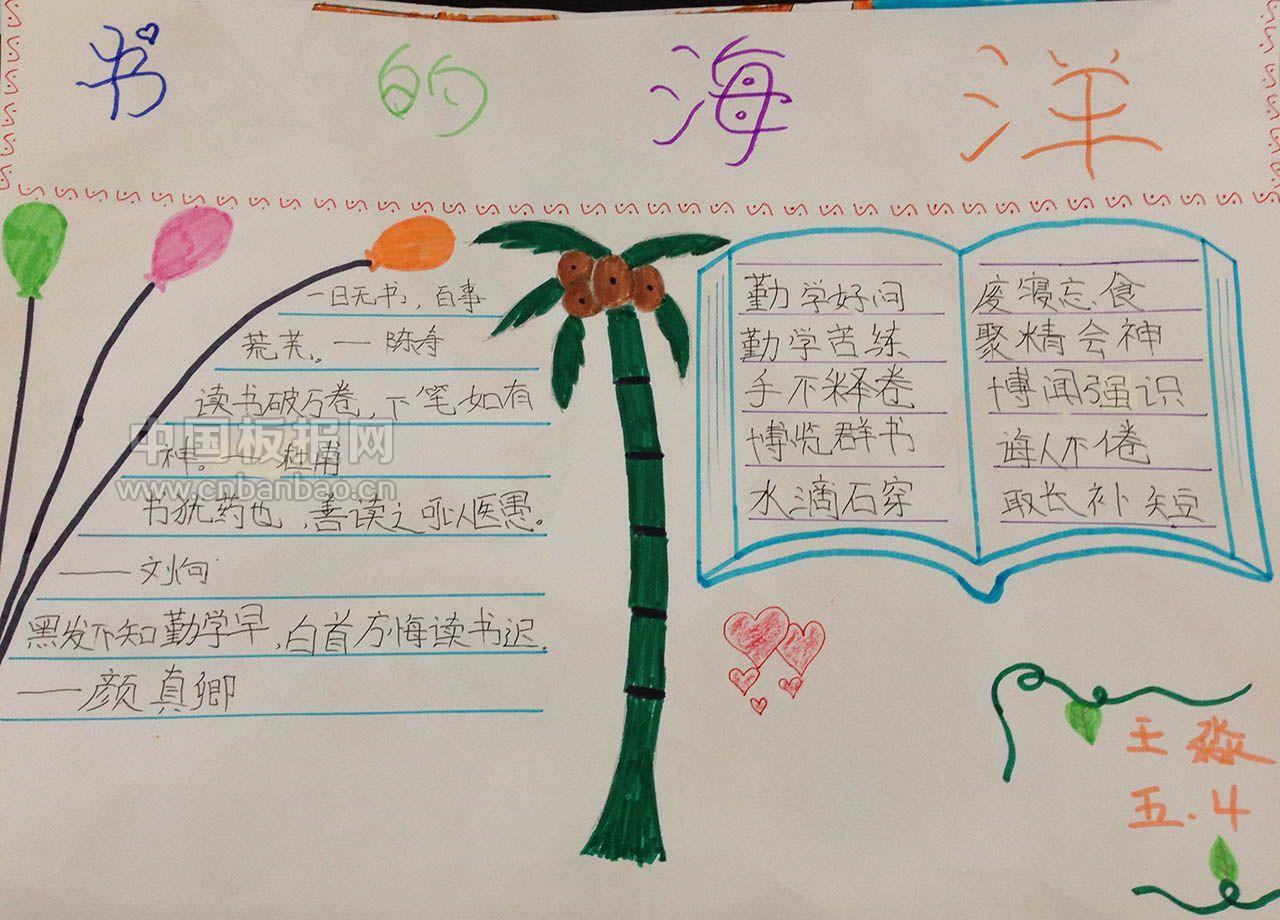 书的海洋
一日无书，百事
荒芜。— 陈寿
读书破万卷，下笔如有
神。— 杜甫
书犹药也，善读之可以医愚。
—— 刘向
黑发不知勤学早，白首方悔读书迟。
—— 颜真卿
勤学好问
勤学苦练
手不释卷
博览群书
水滴石穿
废寝忘食
聚精会神
博闻强识
诲人不倦
取长补短
王淼
五.4
中国板报网
www.cnbanbao.cn